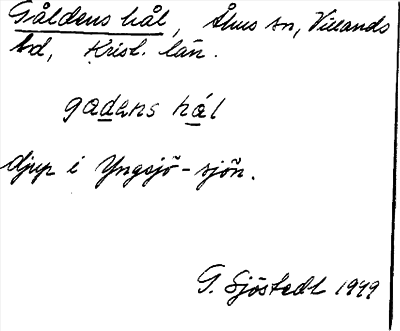 Gåldens hål, Åhus sn, Villands
hd, Krist. län.
gadens hál
djup i Yngsjö-sjön.
G. Sjöstedt 1949